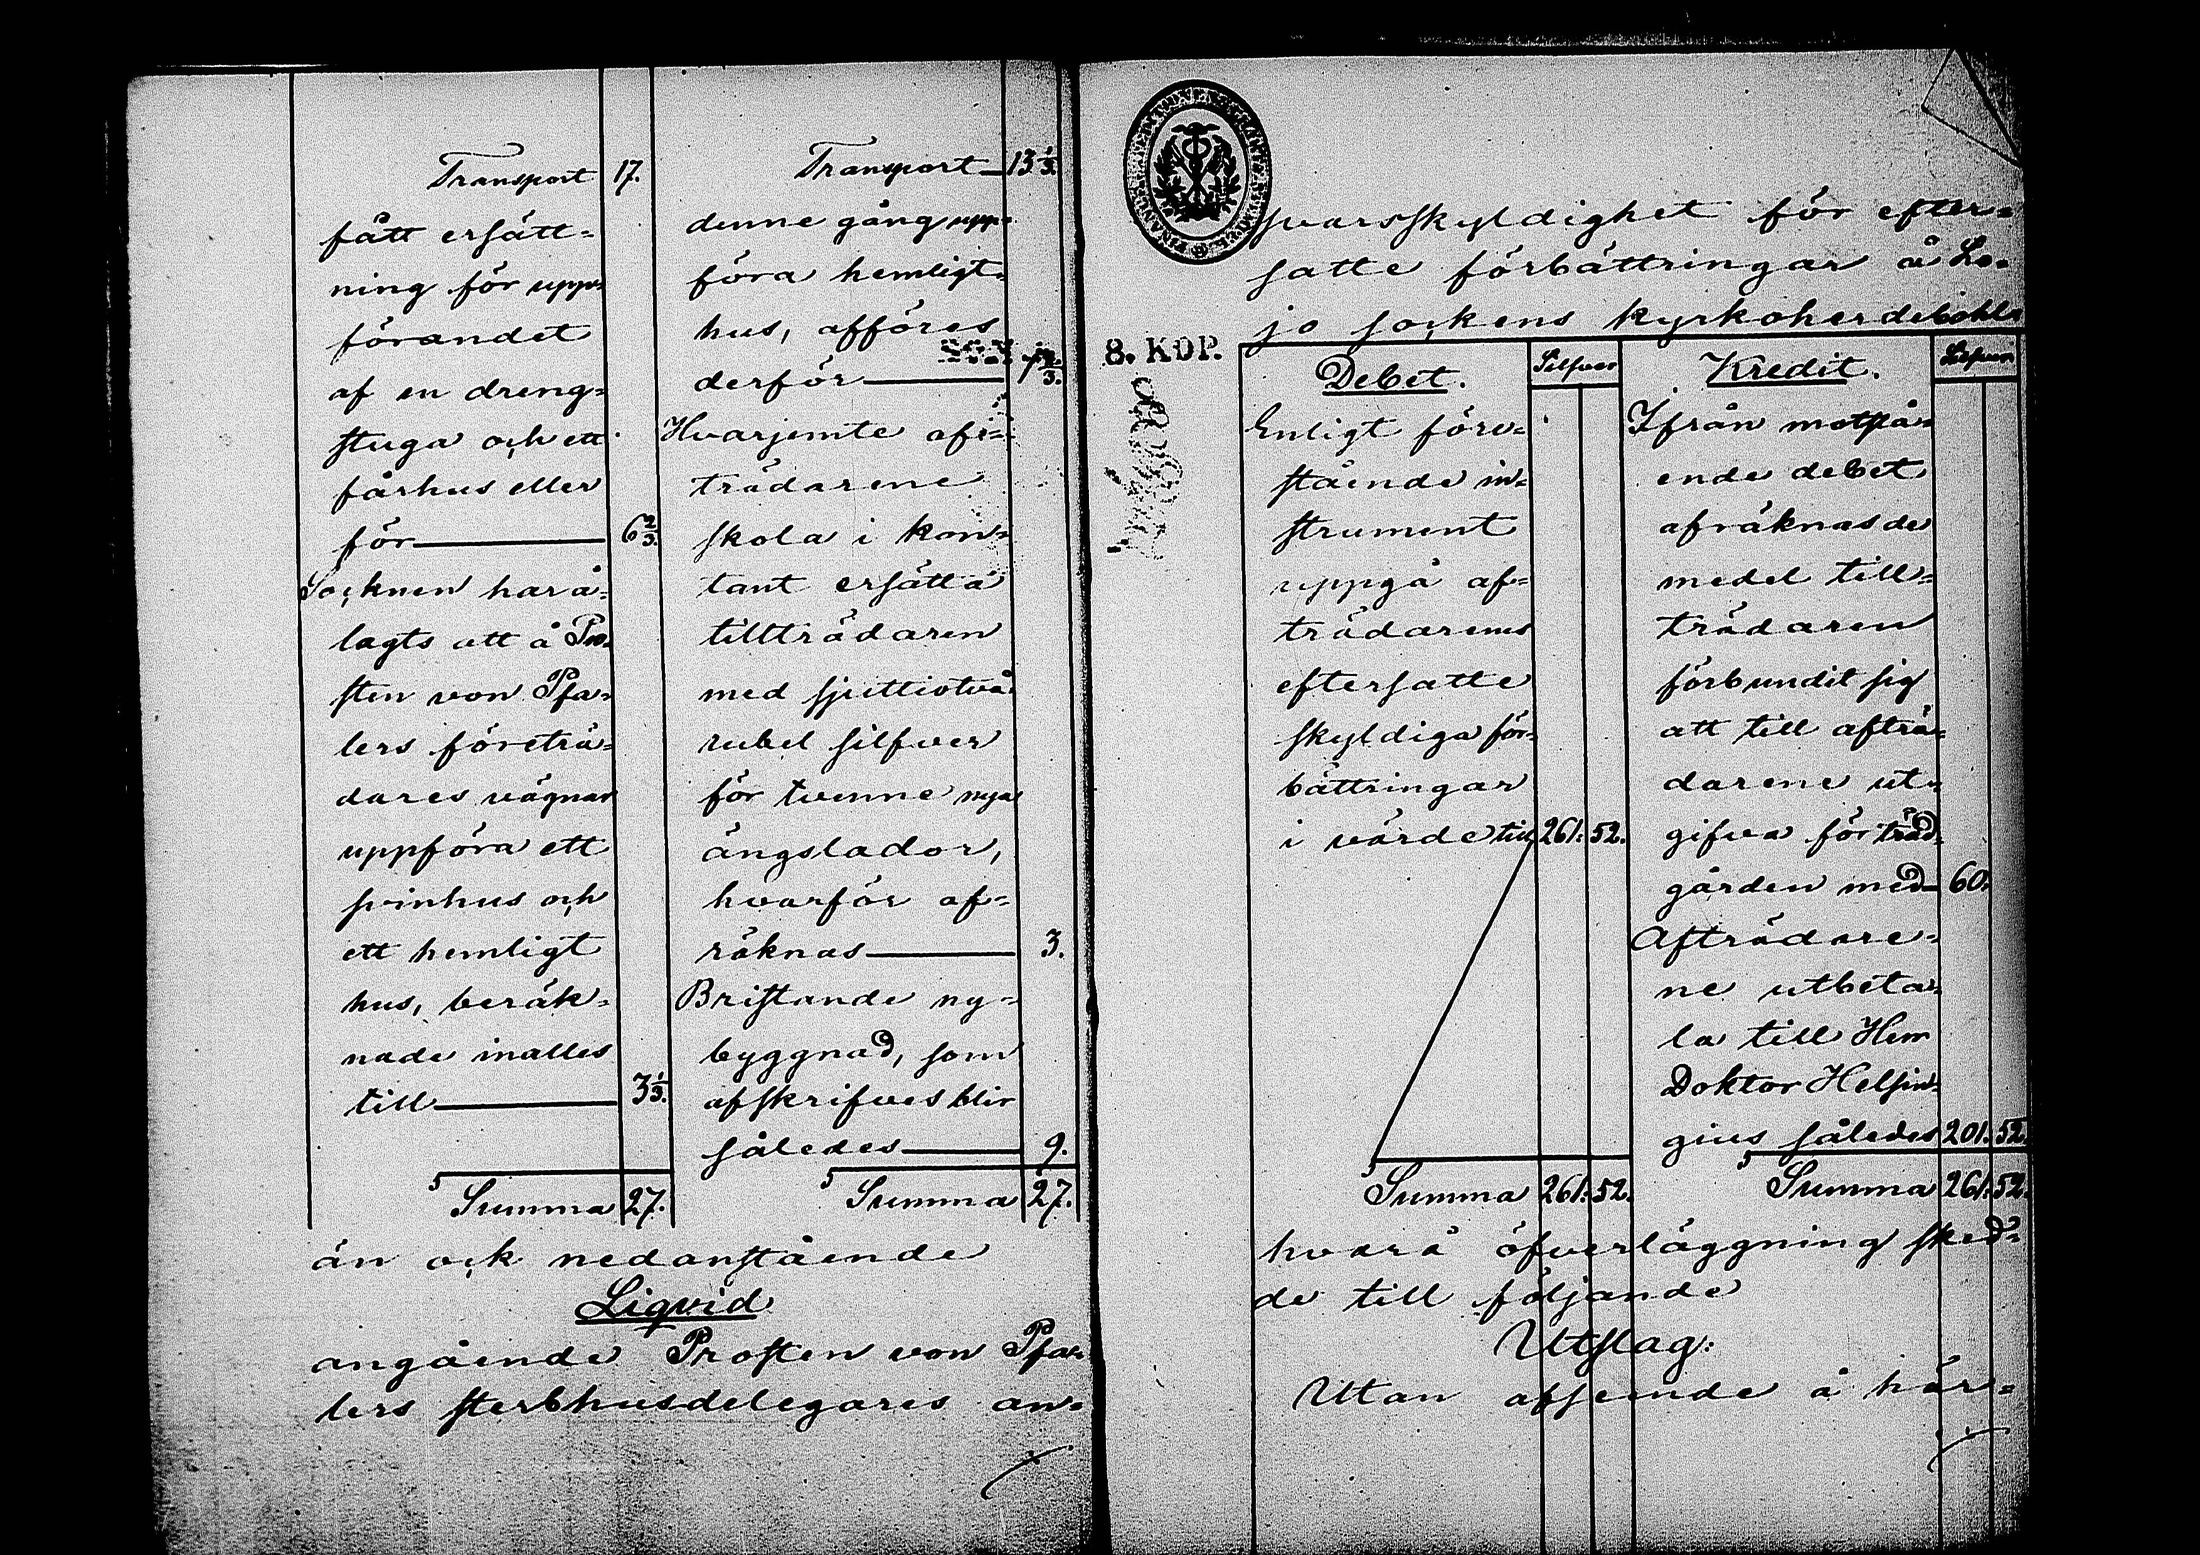 Transport 17.
fått ersätt=
ning för upp=
förandet
af en dreng=
stuga och ett
fårhus eller
för 6 2/3.
Socknen har å=
lagts att å Pro=
sten von Pfa=
lers företrä=
dares vägnar
uppföra ett
svinhus och
ett hemligt
hus, beräk=
nade inalles
till 3 1/3.
Summa 27.
Transport 13 1/3.
denne gång upp=
föra hemligt=
hus, afföres
derför 1 2/3.
Hvarjemte af=
trädarene
skola i kon=
tant ersätta
tillträdaren
med sjuttiotvå
rubel silfver
för tvenne nya
ängslador,
hvarför af=
räknas 3.
Bristande ny=
byggnad, som
afskrifves blir
således 9.
Summa 27.
än ock nedanstående
Liqvid
angående Prosten von Pfa=
lers sterbhusdelegares an=
8. KOP.
svarsskyldighet för efter=
satte förbättringar å Lo=
jo sockens kyrkoherdebohl
Debet. Silfver
Enligt före=
stående in=
strument
uppgå af=
trädarenes
eftersatte
skyldiga för=
bättringar
i värde till 261. 52.
Summa 261. 52.
Kredit. Silfver
Ifrån motstå=
ende debet
afräknas de
medel till=
trädaren
förbundit sig
att till afträ=
darene ut=
gifva för träd=
gården med 60.
Afträdare=
ne utbeta=
la till Herr
Doktor Helsin=
gius således 201. 52.
Summa 261. 52.
hvarå öfverläggning sked=
de till följande
Utslag:
Utan afseende å här=